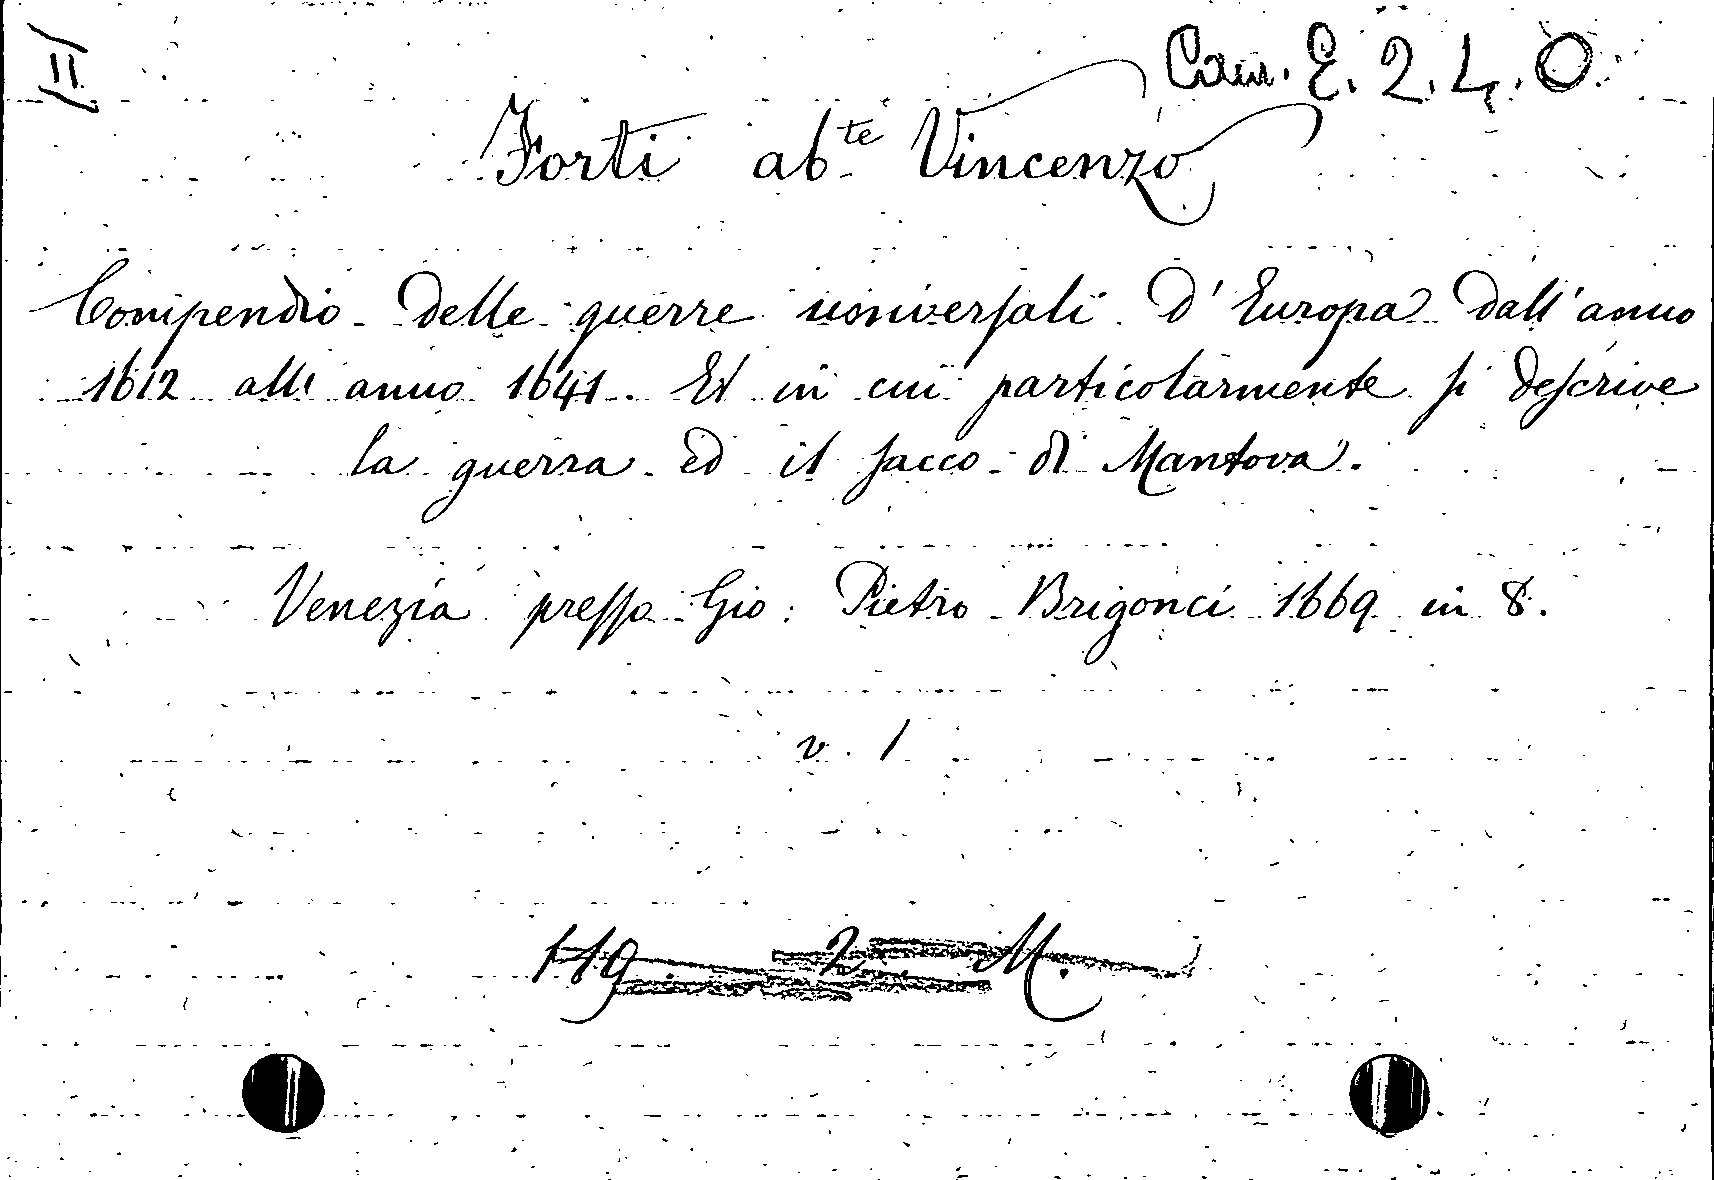 II
Cam. E. 2. 4. 0
Forti ab.te Vincenzo
Compendio delle guerre universali d'Europa dall'anno
1612 all' anno 1641. Et in cui particolarmente si descrive
la guerra ed il sacco di Mantova.
Venezia presso Gio: Pietro Brigonci 1669 in 8.
v. 1
119. 2. M.